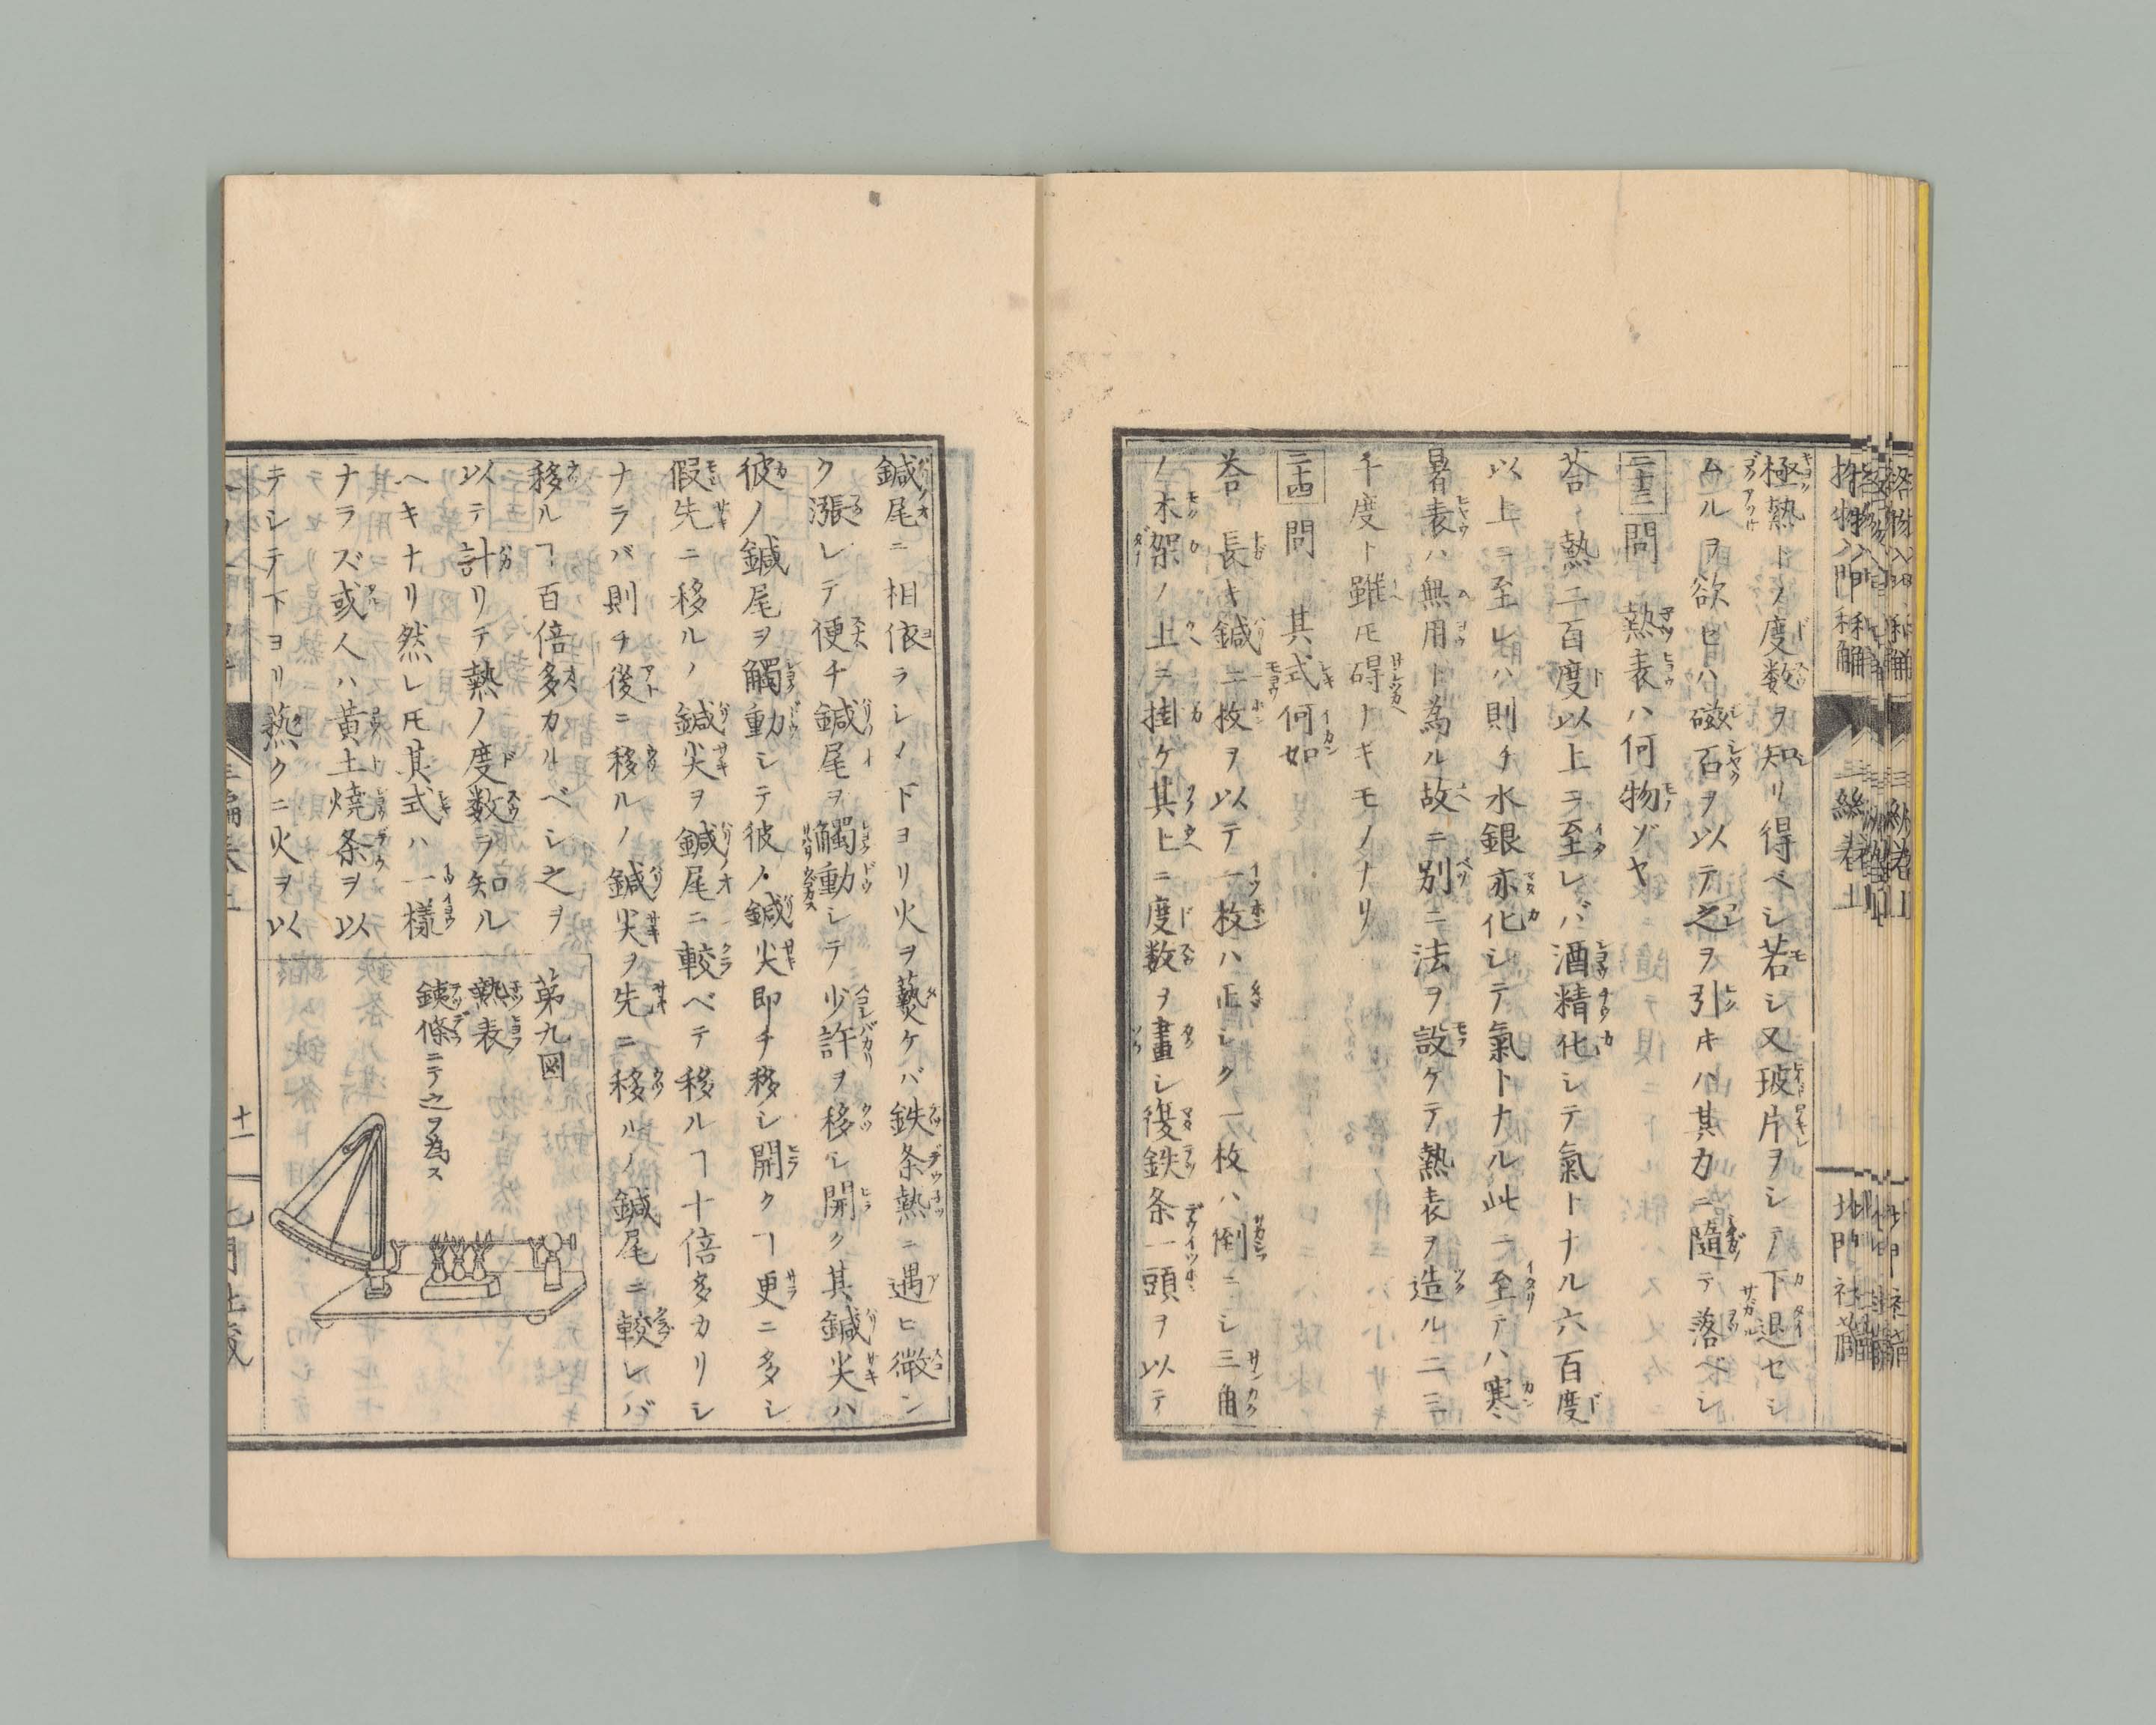 極熱ト丶度数ヲ知リ得ベシ若シ又玻片ヲシテ下退セシ
ムルヲ欲セハ磁石ヲ以テ之ヲ引キハ其力ニ隨テ落ベシ
三十三 問 熱表ハ何物ゾヤ
荅 熱二百度以上ニ至レバ酒精化シテ氣トナル六百度
以上ニ至レハ則チ水銀亦化シテ氣トナル此ニ至テハ寒
暑表ハ無用ト為ル故ニ別ニ法ヲ設ケテ熱表ヲ造ル二三
千度ト雖𪜈碍ナキモノナリ
三十四 問 其式何如
荅 長キ鍼二枚ヲ以テ一枚ハ正シク一枚ハ倒ニシ三角
ノ木架ノ上ニ掛ケ其上ニ度数ヲ畫シ復鉄条一頭ヲ以テ
鍼尾ニ相依ラシメ下ヨリ火ヲ爇ケバ鉄条熱ニ遇ヒ微シ
ク漲レテ便チ鍼尾ヲ觸動シテ少許ヲ移シ開ク其鍼尖ハ
彼ノ鍼尾ヲ觸動シテ彼ノ鍼尖即チ移シ開クヿ更ニ多シ
假先ニ移ルノ鍼尖ヲ鍼尾ニ較ベテ移ルヿ十倍多カリシ
ナラバ則チ後ニ移ルノ鍼尖ヲ先ニ移ルノ鍼尾ニ較レバ
移ルヿ百倍多カルベシ之ヲ
以テ計リテ熱ノ度数ヲ知ル
ヘキナリ然レ𪜈其式ハ一樣
ナラズ或人ハ黄土燒条ヲ以
テシテ下ヨリ爇クニ火ヲ以
第九図
熱表
鉄條ニテ之ヲ為ス
十一